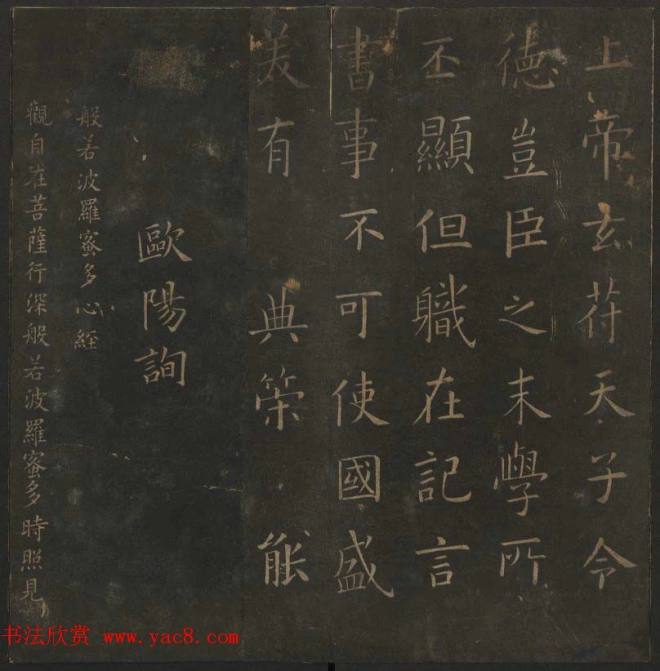 上帝玄符天子令
德豈臣之末學所
丕顯但職在記言
書事不可使國盛
美有 典策 能
歐陽詢
般若波羅蜜多心經
觀自在菩薩行深般若波羅蜜多時照見
书法欣赏 www.yac8.com